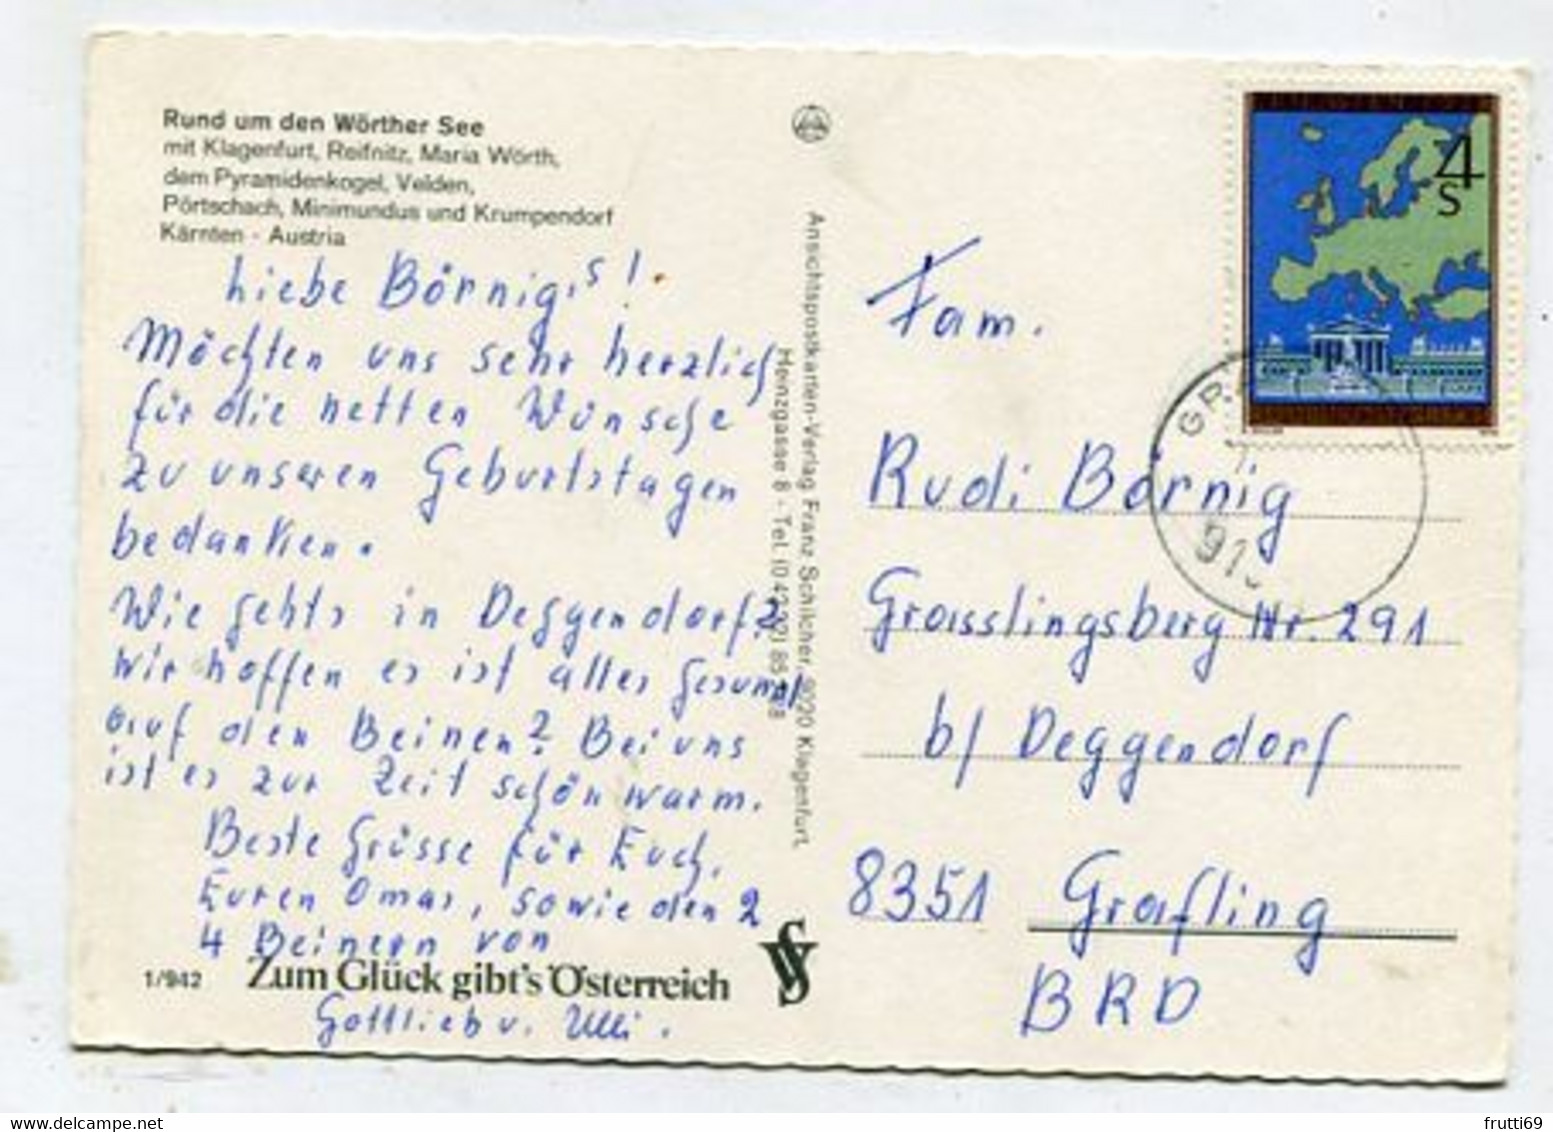 Rund um den Wörther See
mit Klagenfurt, Reifnitz, Maria Wörth,
dem Pyramidenkogel, Velden,
Pörtschach, Minimundus und Krumpendorf
Kärnten - Austria
Liebe Börnig,s!
Möchten uns sehr herzlich
für die netten Wünsche
zu unseren Geburtstagen
bedanken.
Wie gehts in Deggendorf?
Wir hoffen es ist alles gesund
auf den Beinen? Bei uns
ist es zur Zeit schön warm.
Beste Grüsse für Euch,
Euren Omas, sowie den 2
4 Beinern von
1/942 Zum Glück gibt's Österreich
Gottlieb u. Ulli.
Ansichtspostkarten-Verlag Franz Schilcher, 9020 Klagenfurt,
Heinzgasse 8 - Tel. (0 42 22) 85
4
S
GR
910
Fam.
Rudi Börnig
Graisslingsberg Nr. 291
b/ Deggendorf
8351 Grafling
BRD
frutti69